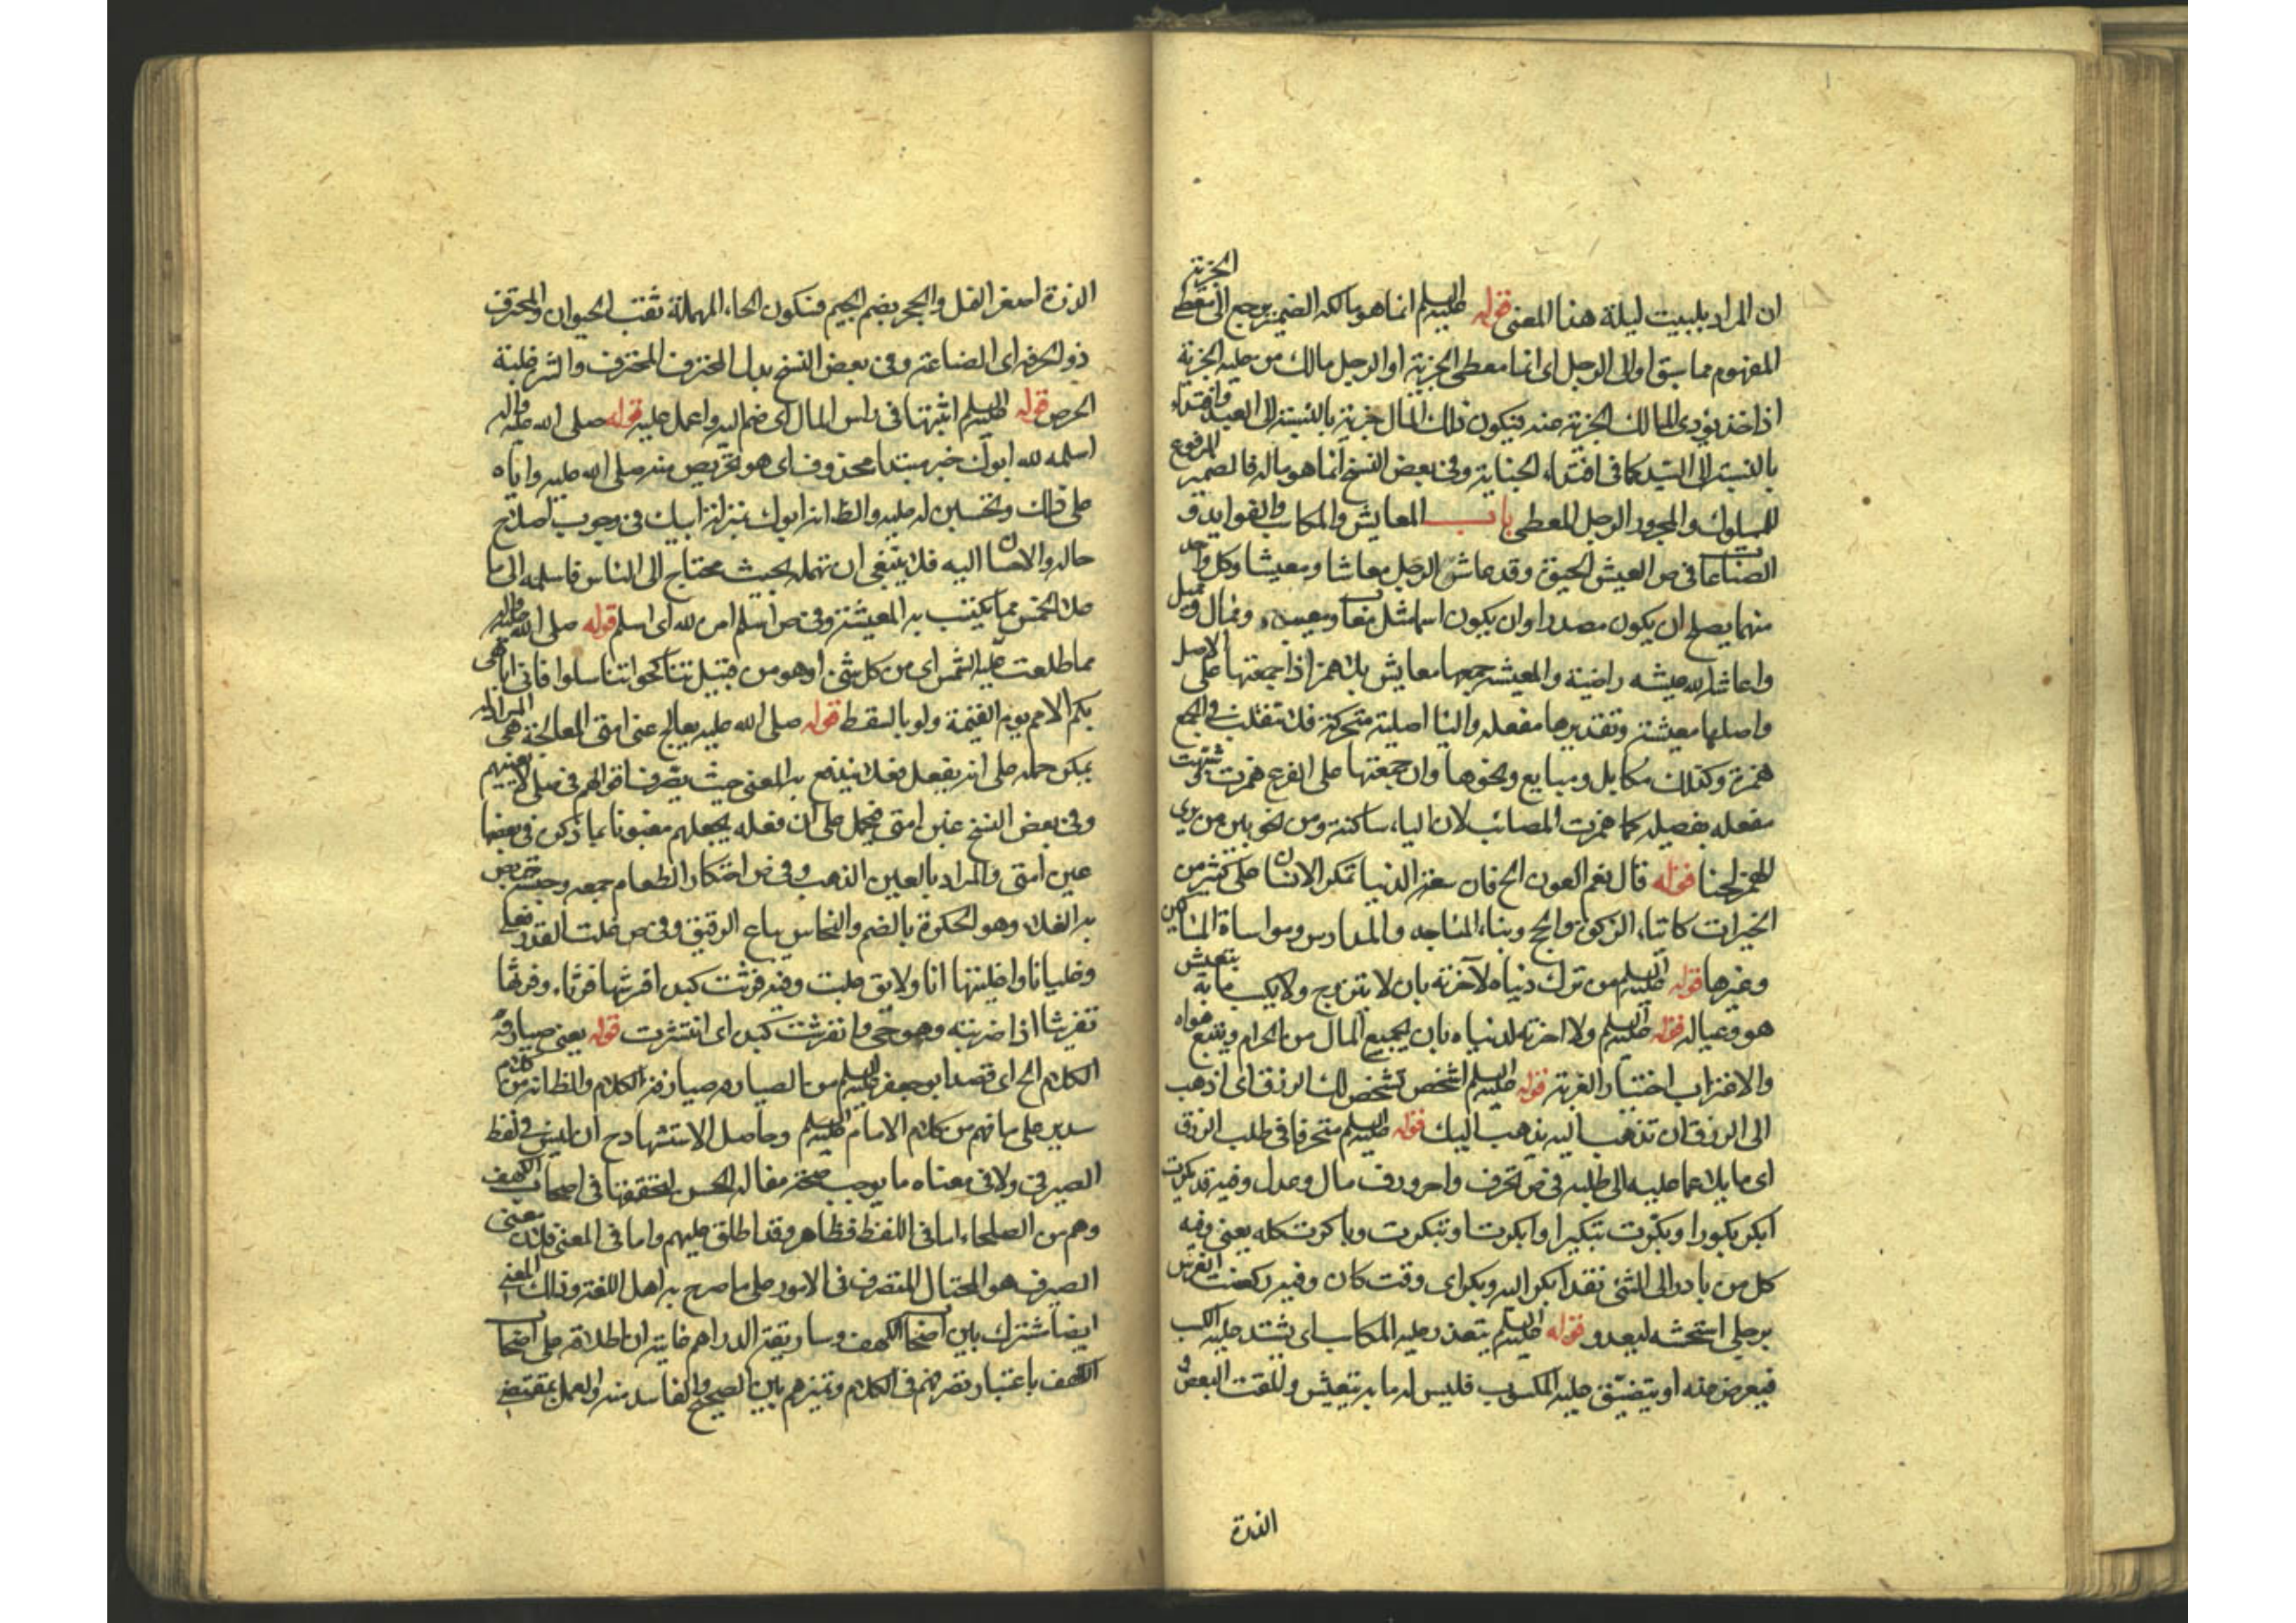 ان المراد بلبيت ليلة هذا المعنى قوله عليه السلم انما هو مالكه الضمير يرجع الى معطى الجزية
المفهوم مما سبق او الى الرجل اى انما معطى الجزية او الرجل مالك من عليه الجزية
اذا خذ يؤدى المالك الجزية عنه فيكون ذلك المال جزية بالنسبة الى العبد وافتداء
بالنسبة الى السيد كما فى افتداء الجناية وفى بعض النسخ انما هو ماله فالضمير المرفوع
للمملوك والمجرور الرجل المعطى باب المعايش والمكاسب والفوايد و
الصناعات فى ص العيش الحيوة وقد عاش الرجل معاشا ومعيشا وكل واحد
منهما يصلح ان يكون مصدرا وان يكون اسما مثل معاب ومعيب وممال ومميل
واعاشه الله عيشه راضية والمعيشة جمعها معايش بلا همز اذا جمعتها على الاصل
واصلها معيشة وتقديرها مفعلة والياء اصلية متحركة فلا تنقلب فى الجمع
همزة وكذلك مكايل ومبايع ونحوها وان جمعتها على الفرع همزت وشبهت
مفعلة بفعيلة كما همزت المصائب لان الياء ساكنة ومن النحويين من يرى
الهمز لحنا قوله قال نعم العون الخ فان سعة الدنيا تمكن الانسان على كثير من
الخيرات كايتاء الزكوة والحج وبناء المساجد والمدارس ومواساة المساكين
وغيرها قوله عليه السلم من ترك دنياه لآخرته بان لا يتزوج ولا يكسب ما به يتعيش
هو وعياله قوله عليه السلم ولا اخرته لدنياه بان يجمع المال من الحرام ويتبع هواه
والاغتراب اختيار الغربة قوله عليه السلم اشخص يشخص لك الرزق اى اذهب
الى الرزق ان تذهب اليه يذهب اليك قوله عليه السلم متحرفا فى طلب الرزق
اى مايلا عما عليه الى طلبه فى ص تحرف واحرورف مال وعدل وفيه قد بكرت
ابكر بكورا وبكرت تبكيرا وابكرت وابتكرت وباكرت كله بمعنى وفيه
كل من بادر الى الشئ فقد ابكر اليه وبكر اى وقت كان وفيه ركضت الفرس
برجلى استحثه ليعدو قوله عليه السلم يتعذر عليه المكاسب اى يشتد عليه الكسب
فيعرض عنه او يتضيق عليه المكسوب فليس له ما به يتعيش والمقت البعض و
الذرة
الذرة اصغر النمل والجحر بضم الجيم فسكون الحاء المهملة ثقب الحيوان والمحترف
ذو الحرفة اى الصناعة وفى بعض النسخ بدل المحترف المحترف والشره غلبة
الحرص قوله عليه السلم اثبتها فى راس المال اى ضم اليه واعمل عليه قوله صلى الله عليه واله
اسلمه لله ابوك خبر مبتدا محذوف اى هو تحريص منه صلى الله عليه واياه
على ذلك وتحسين له عليه والظ انه ابوك بمنزلة ابيك فى وجوب اصلاح
حاله والاحسان اليه فلا ينبغى ان تهمله بحيث محتاج الى الناس فاسلمه الى ما
عدا الخمس مما يكتسب به المعيشة وفى ص اسلم امره لله اى اسلم قوله صلى الله عليه واله
مما طلعت عليه الشمس اى من كل شئ وهو من قبيل تناكحوا تناسلوا فانى اباهى
بكم الامم يوم القيمة ولو بالسقط قوله صلى الله عليه يعالج عنى امتى المعالجة هى المزاولة
يمكن حمله على انه يفعل فعلا يندفع به المعنى حيث يصرف اقواتهم فى ما لا يعنيهم
وفى بعض النسخ غبن امتى فيحمل على ان فعله يجعلهم مغبونا بما ذكر وفى بعضها
عين امتى والمراد بالعين الذهب وفى ص احتكار الطعام جمعه وحبسه يتربص
به الغلاء وهو الحكرة بالضم والنخاس بياع الرقيق وفى ص غلت القدر تغلى
وغليانا واغليتها انا ولا يق غليت وفيه فرثت كبده افرثها فرثا وفرثها
تفريثا اذا ضربته وهو حى وانفرثت كبده اى انتشرت قوله يعنى صيارفة
الكلام الخ اى قصد ابو جعفر عليه السلم من الصيارفة صيارفة الكلام والظ انه من كلام
سدير على ما فهم من كلام الامام عليه السلم وحاصل الاستشهاد ح ان ليس فى لفظ
الصيرفى ولا فى معناه ما يوجب صحة مقالة الحسن لتحققها فى اصحاب الكهف
وهم من الصلحاء اما فى اللفظ فظاهر وقد اطلق عليهم واما فى المعنى فلان معنى
الصيرف هو المحتال المتصرف فى الامور على ما صرح به اهل اللغة وذلك المعنى
ايضا مشترك بين اصحاب الكهف وصيارفة الدراهم غاية ان اطلاقه على اصحاب
الكهف باعتبار تصرفهم فى الكلام وتميزهم بين الصحيح والفاسد منه والعمل بمقتضى